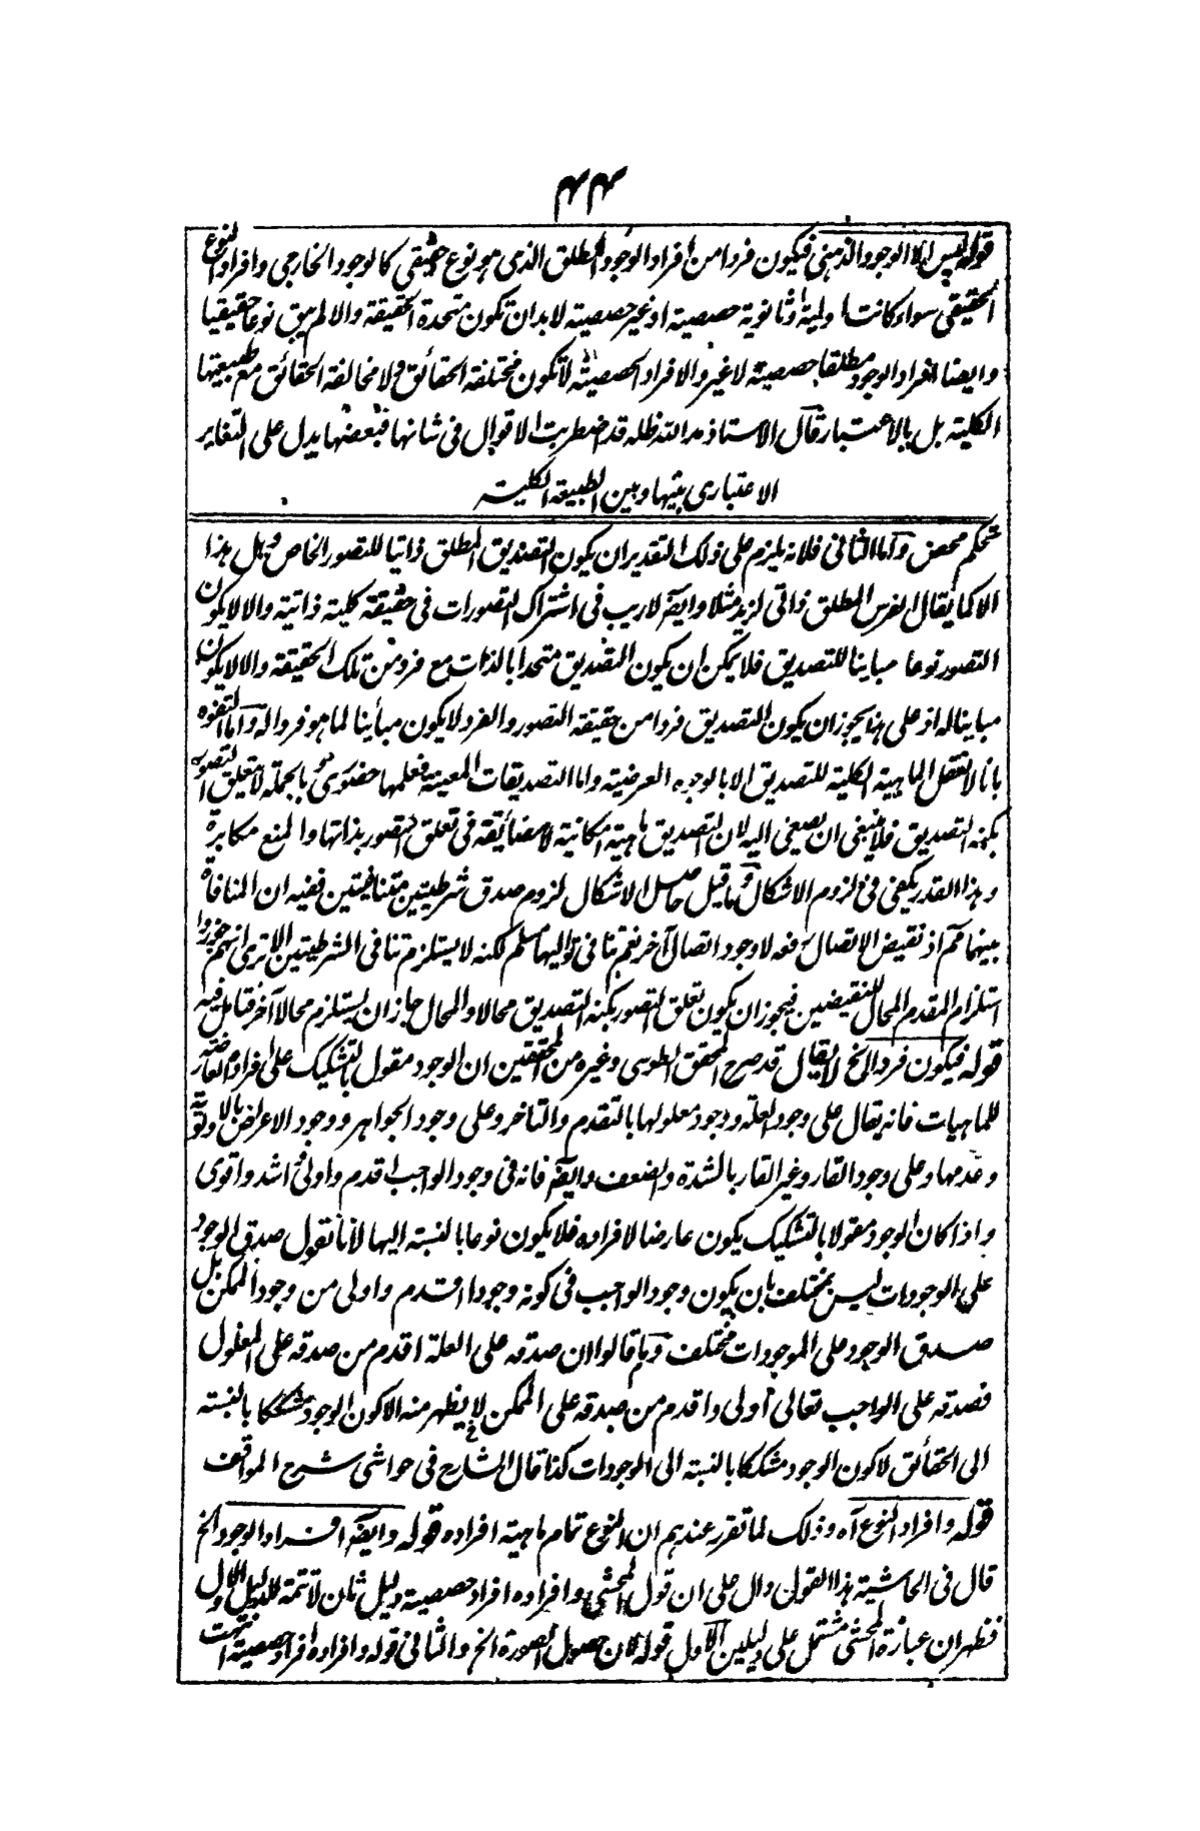 ٤٤
قوله ليس الا الوجود الذهني فيكون فردا من افراد الوجود المطلق الذي هو نوع حقيقي كالوجود الخارجي وافراد النوع
الحقيقي سواء كانت اولية او ثانوية حصصية او غير حصصية لا بد ان تكون متحدة الحقيقة والا لم يبق نوعا حقيقيا
وايضا افراد الوجود مطلقا حصصية لا غير والافراد الحصصية لا تكون مختلفة الحقائق ولا مخالفة الحقائق مع طبيعتها
الكلية بل بالاعتبار قال الاستاذ مد الله ظله قد اضطربت الاقوال في شانها فبعضها يدل على التغاير
الاعتباري بينها وبين الطبيعة الكلية
تحكم محض واما الثاني فلانه يلزم على ذلك التقدير ان يكون التصديق المطلق ذاتيا للتصور الخاص وهل هذا
الا كما يقال الفرس المطلق ذاتي لزيد مثلا وايضا لا ريب في اشتراك التصورات في حقيقة كلية ذاتية والا لا يكون
التصور نوعا مباينا للتصديق فلا يمكن ان يكون التصديق متحدا بالذات مع فرد من تلك الحقيقة والا لا يكون
مباينا له اذ على هذا يجوز ان يكون التصديق فردا من حقيقة التصور والفرد لا يكون مباينا لما هو فرد له واما التفوه
بانا لا نعقل الماهية الكلية للتصديق الا بالوجوه العرضية واما التصديقات المعينة فعلمها حضوري بالجملة لا يتعلق التصور
بكنه التصديق فلا ينبغي ان يصغى اليه لان التصديق ماهية امكانية لا مضائقة في تعلق التصور بذاتها والمنع مكابرة
وهذا القدر يكفي في لزوم الاشكال وما قيل حاصل الاشكال لزوم صدق شرطيتين متنافيتين ففيه ان المنافاة
بينهما مم اذ نقيض الاتصال رفعه لا وجود اتصال آخر نعم تنافي تواليها مسلم لكنه لا يستلزم تنافي الشرطيتين الا ترى انهم جوزوا
استلزام المقدم المحال للنقيضين فيجوز ان يكون تعلق التصور بكنه التصديق محالا والمحال جاز ان يستلزم محالا آخر فتامل فيه
قوله فيكون فردا الخ لا يقال قد صرح المحقق الطوسي وغيره من المحققين ان الوجود مقول بالتشكيك على افراده العارضة
للماهيات فانه يقال على وجود العلة ووجود معلولها بالتقدم والتاخر وعلى وجود الجواهر ووجود الاعراض بالاولوية
وعدمها وعلى وجود القار وغير القار بالشدة والضعف وايضا فانه في وجود الواجب اقدم واولى اشد واقوى
واذا كان الوجود مقولا بالتشكيك يكون عارضا لافراده فلا يكون نوعا بالنسبة اليها لانا نقول صدق الوجود
على الوجودات ليس بمختلف بان يكون وجود الواجب في كونه وجودا اقدم واولى من وجود الممكن بل
صدق الوجود على الموجودات مختلف وما قالوا ان صدقه على العلة اقدم من صدقه على المعلول
فصدقه على الواجب تعالى اولى واقدم من صدقه على الممكن لا يظهر منه الا كون الوجود مشككا بالنسبة
الى الحقائق لا كون الوجود مشككا بالنسبة الى الوجودات كذا قال الشارح في حواشي شرح المواقف
قوله وافراد النوع آه وذلك لما تقرر عندهم ان النوع تمام ماهية افراده قوله وايضا افراد الوجود الخ
قال في الحاشية هذا القول دال على ان قول المحشي وافراده افراد حصصية دليل ثان لا تتمة للدليل الاول
فظهر ان عبارة المحشي مشتمل على دليلين الاول قوله لان حصول الصورة الخ والثاني قوله وافراده افراد حصصية انتهت